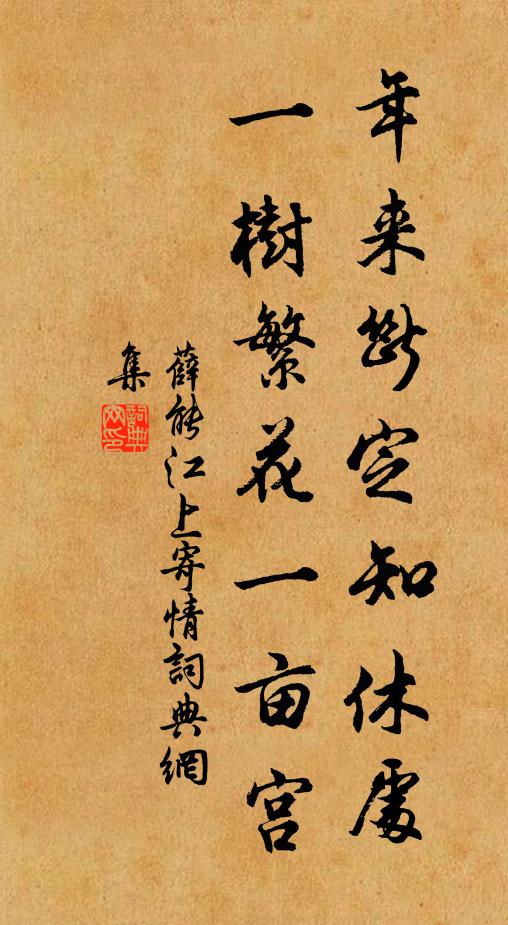 年来断定知休处
一樹繁花一亩宫
薛能江上寄情詞典網
集
詞典网印